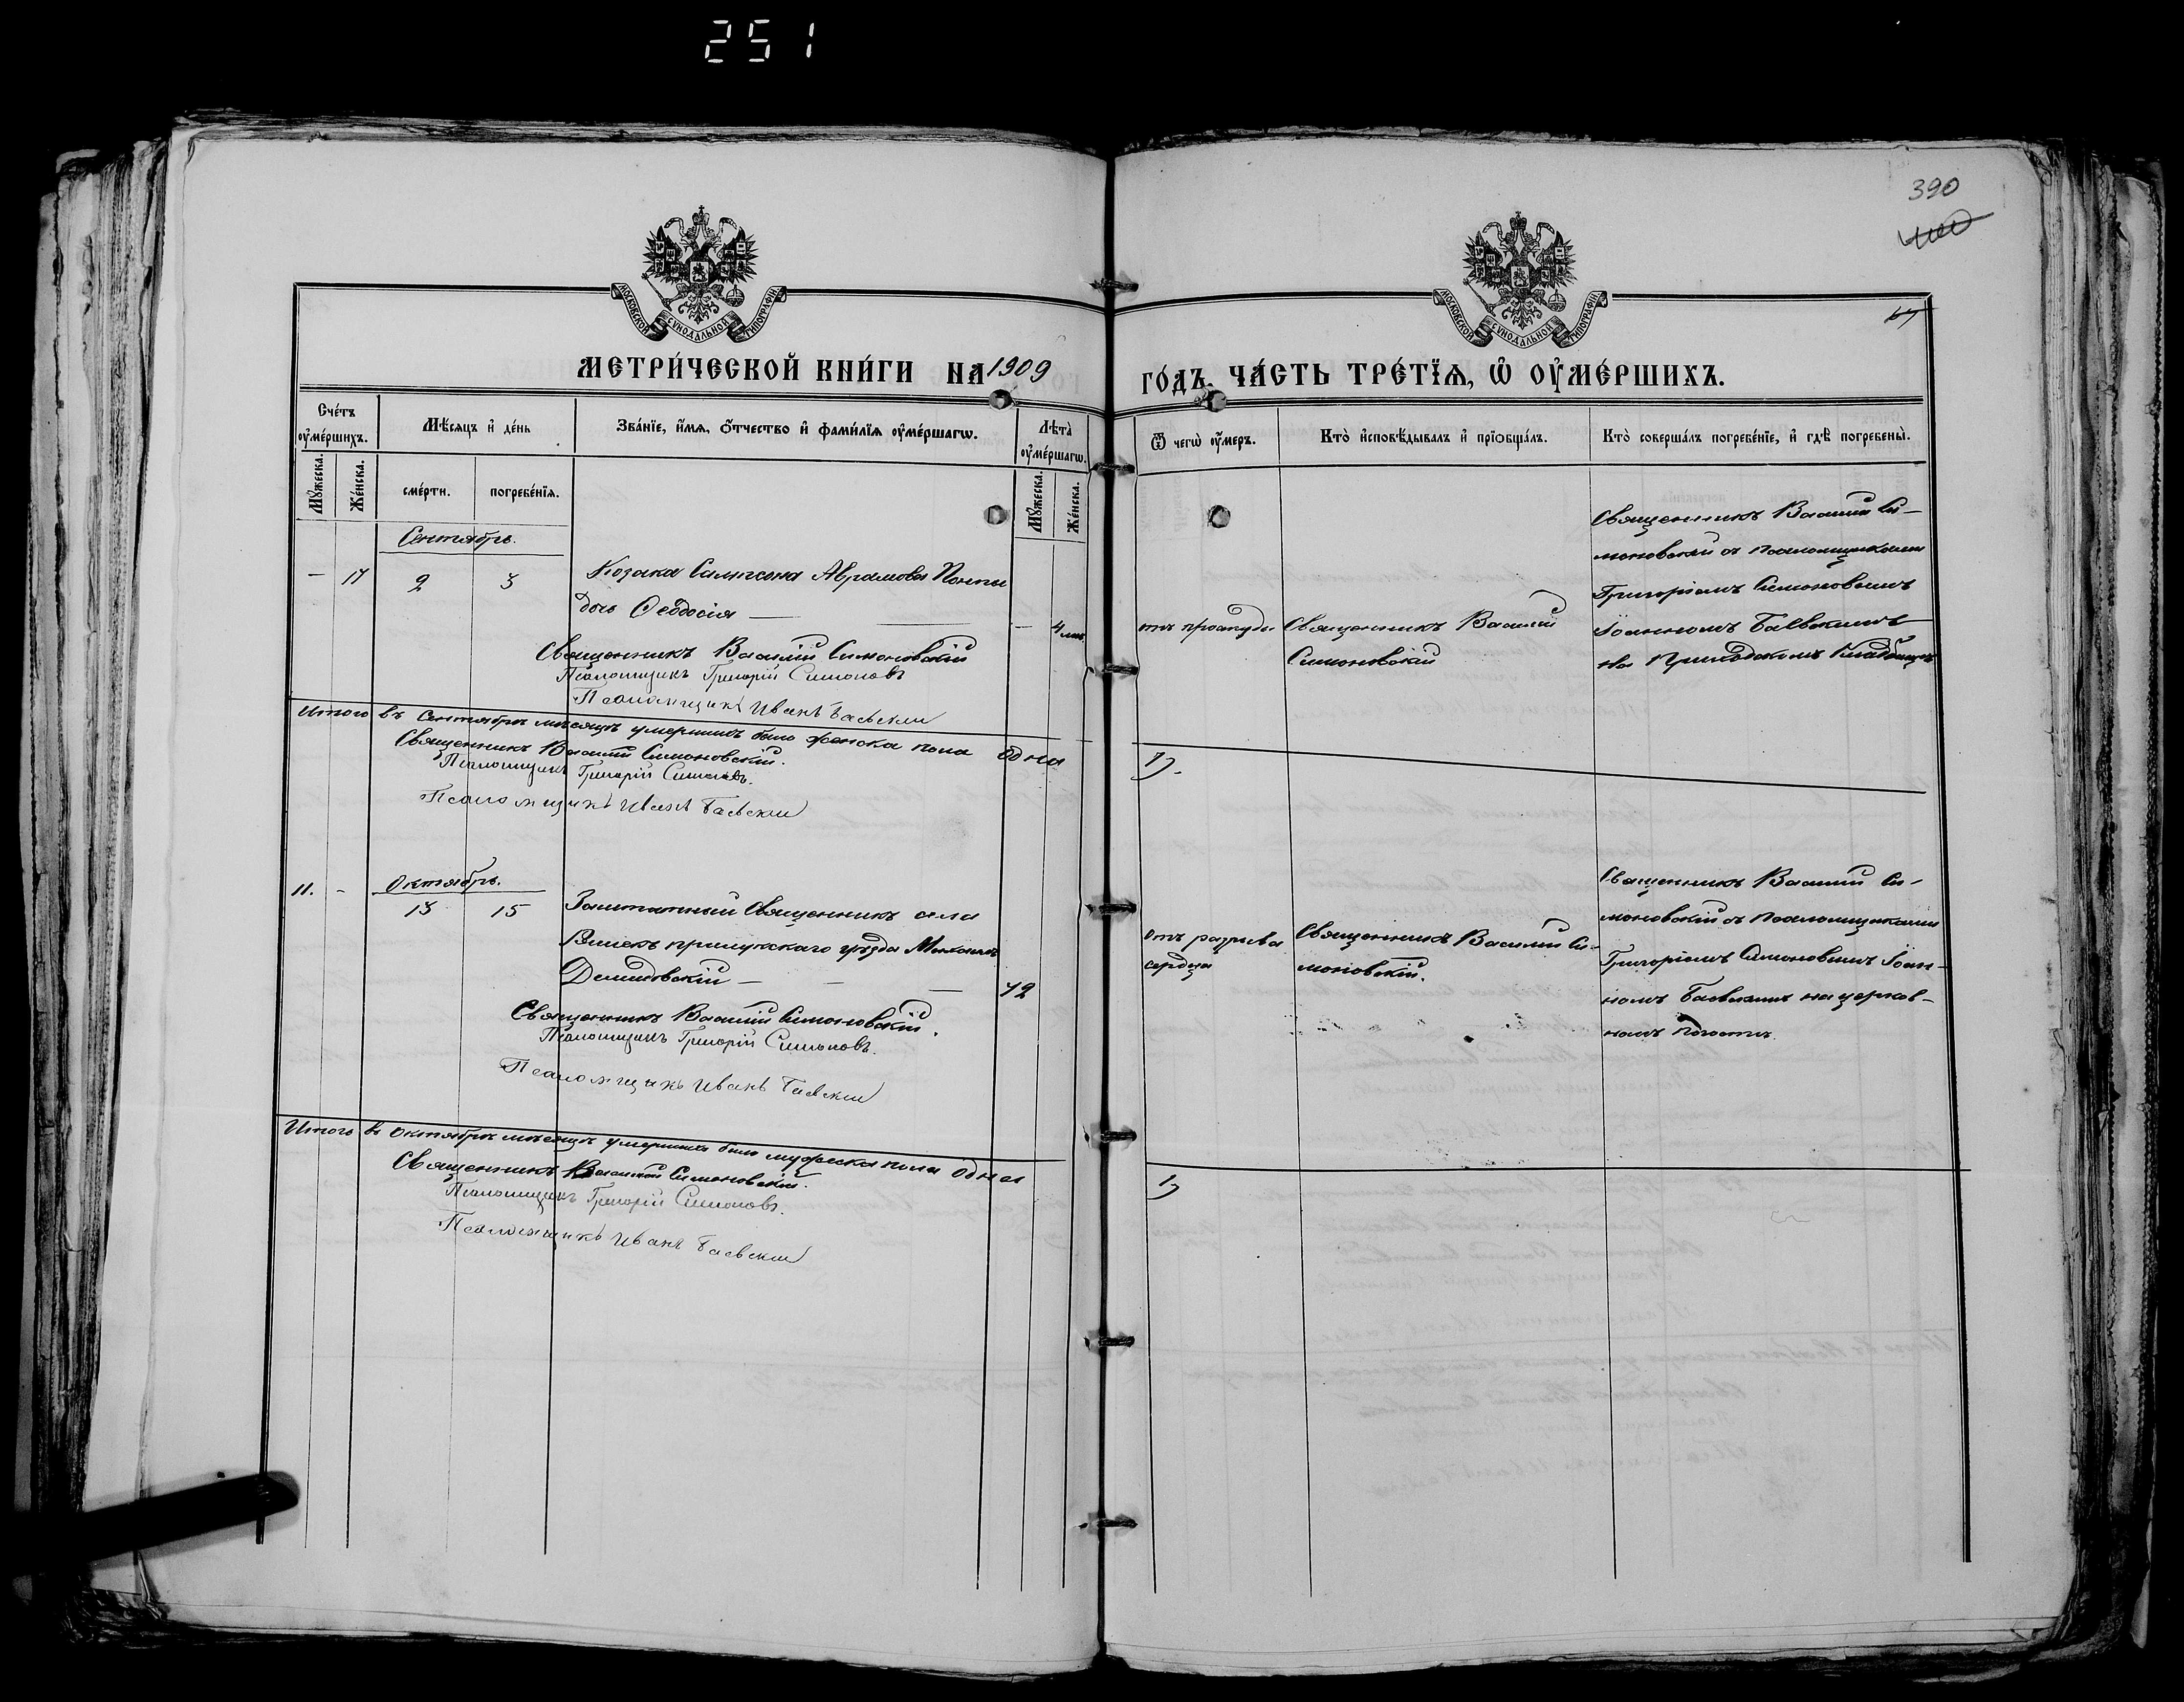 251
390
МОСКОВСКОЙ СѴНОДАЛЬНОЙ ТИПОГРАФІИ
МОСКОВСКОЙ СѴНОДАЛЬНОЙ ТИПОГРАФІИ
МЕТРИ́ЧЕСКОЙ КНИ́ГИ НА 1909
ГО́ДЪ, ЧА́СТЬ ТРЕ́ТЇѦ, Ѡ҆ ОУ҆МЕ́РШИХЪ.
Сче́тъ оу҆ме́ршихъ.
Мꙋ́жеска.
Же́нска.
Мѣ́сѧцъ и҆ де́нь
сме́рти.
погребе́нїѧ.
Зва́нїе, и҆́мѧ, ѻ҆́тчество и҆ фами́лїѧ оу҆ме́ршагѡ.
Лѣта̀ оу҆ме́ршагѡ.
Мꙋ́жеска.
Же́нска.
Ѿ чегѡ̀ оу҆́меръ.
Кто̀ и҆сповѣ́дывалъ и҆ прїѡбща́лъ.
Кто̀ соверша́лъ погребе́нїе, и҆ гдѣ̀ погребены̀.
Сентябрь.
- 17 2 3 Козака Сампсона Аврамова
дочь Ѳеодосія — — 4
Священникъ Василій Симоновскій
Псаломщикъ Григорій Симоновъ
Псаломщикъ Иванъ Баевскій
отъ простуды
Священникъ Василій
Симоновскій
Священникъ Василій Си-
моновскій съ псаломщиками
Григоріемъ Симоновымъ
Іоанномъ Баевскимъ
на Приходскомъ кладбищѣ
Итого въ Сентябрѣ мѣсяцѣ умершихъ было женска пола одна
1).
Священникъ Василій Симоновскій.
Псаломщикъ Григорій Симоновъ.
Псаломщикъ Иванъ Баевскій
Октябрь.
11. - 13 15 Заштатный Священникъ села
прилукскаго уѣзда Михаилъ
Демидовскій — - — 72
Священникъ Василій Симоновскій.
Псаломщикъ Григорій Симоновъ.
Псаломщикъ Иванъ Баевскій
Отъ разрыва
сердца
Священникъ Василій Си-
моновскій.
Священникъ Василій Си-
моновскій съ псаломщиками
Григоріемъ Симоновымъ Іоан-
номъ Баевскимъ на церков-
номъ погостѣ.
Итого въ Октябрѣ мѣсяцѣ умершихъ было мужеска пола одна
1)
Священникъ Василій Симоновскій.
Псаломщикъ Григорій Симоновъ.
Псаломщикъ Иванъ Баевскій